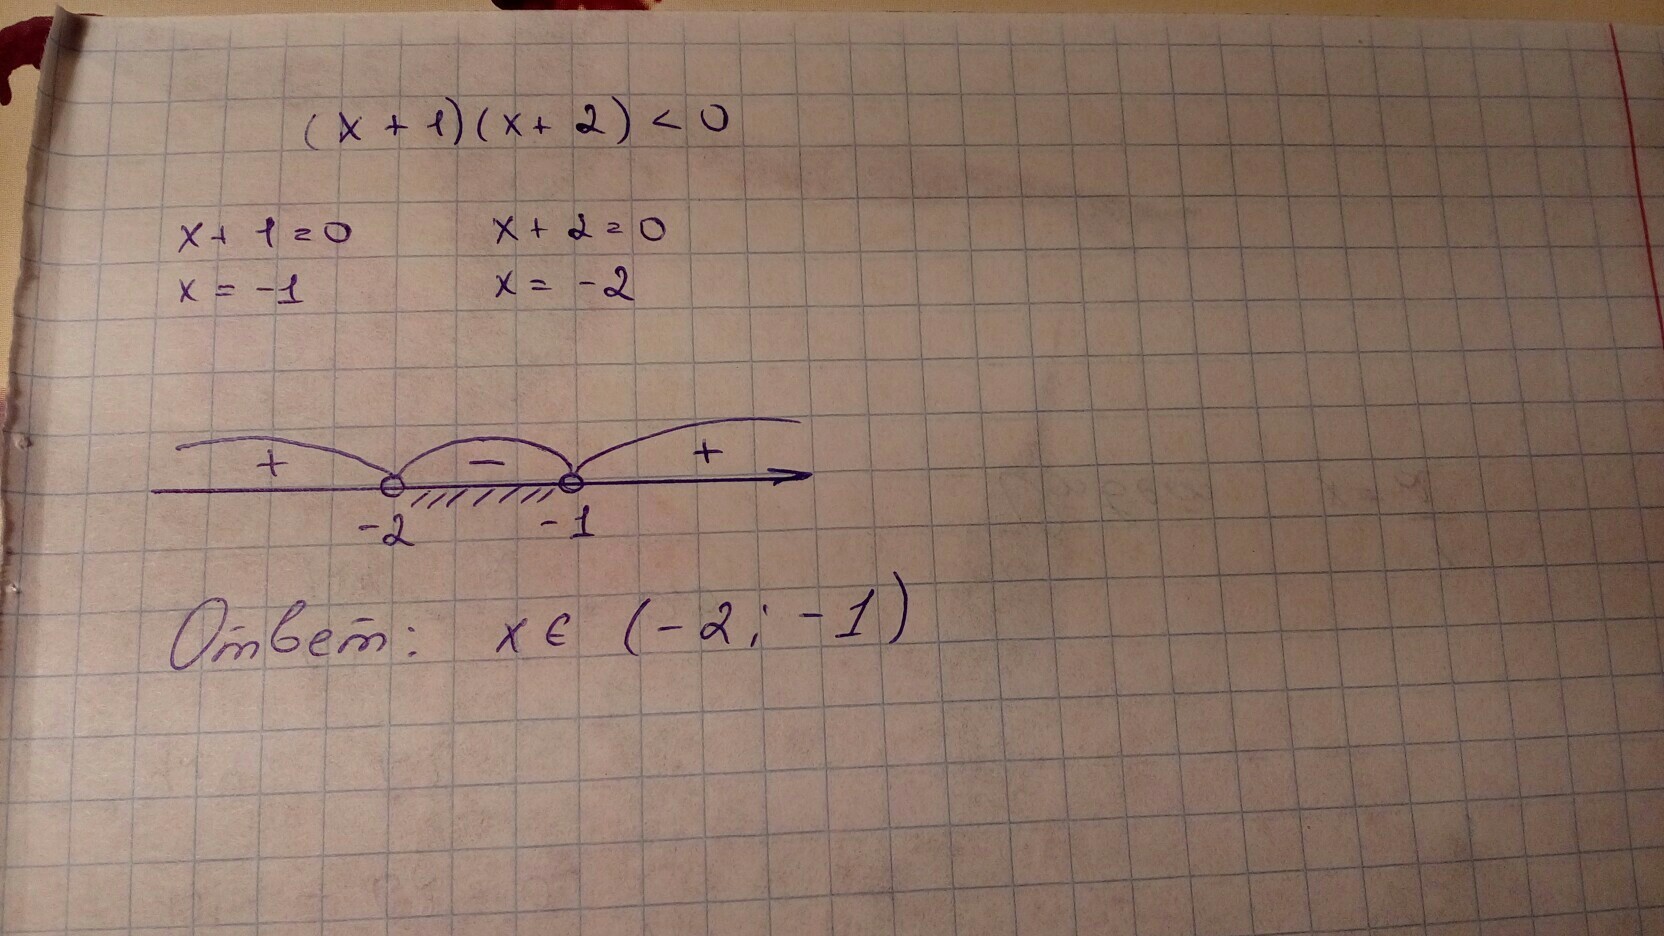 (x + 1)(x + 2) < 0
x + 1 = 0 x + 2 = 0
x = -1 x = -2
+ - +
-2 -1
Ответ: x ∈ (-2; -1)